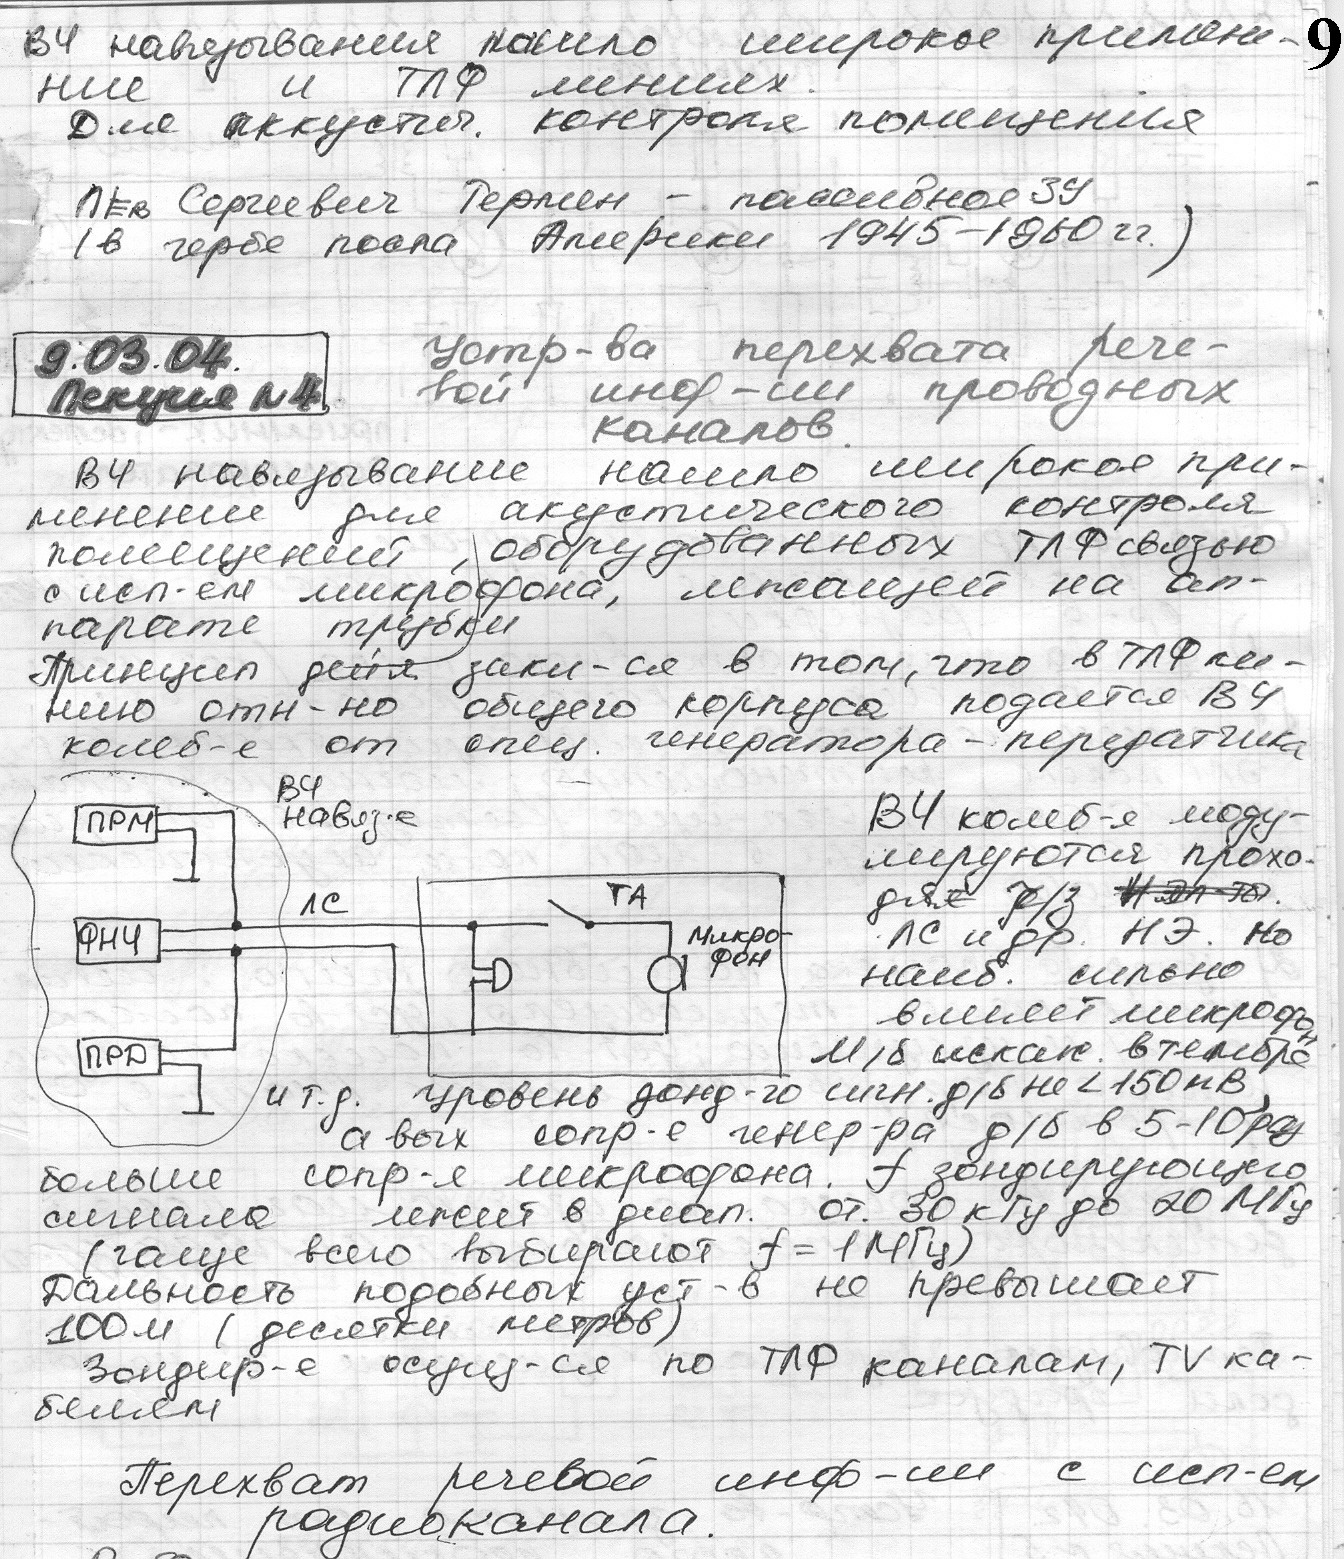 ВЧ навязывания нашло широкое примене- 9
ние и ТЛФ линиях.
Для аккустич. контроля помещения
Лев Сергиевич Термен – пассивное ЗУ
(в гербе посла Америки 1945–1960 гг.)
9.03.04.
Лекция №4
Устр-ва перехвата рече-
вой инф-ии проводных
каналов.
ВЧ навязывание нашло широкое при-
менение для акустического контроля
помещений, оборудованных ТЛФ связью
с исп-ем микрофона, лежащей на ап-
парате трубки
Принцип дейя закл-ся в том, что в ТЛФ ли-
нию отн-но общего корпуса подается ВЧ
колеб-е от спец. генератора – передатчика
ВЧ
навяз-е
ПРМ
ФНЧ
ПРД
ЛС
ТА
Микро-
фон
ВЧ колеб-я моду-
лируются прохо-
дя ч/з
ЛС и др. НЭ. Но
наиб. сильно
влияет микрофон
М/б искаж. в тембре
и т.д. Уровень зонд-го сигн. д/б не < 150 мВ,
а вых сопр-е генер-ра д/б в 5-10 раз
больше сопр-я микрофона. f зондирующего
сигнала лежит в диап. от. 30 кГц до 20 МГц
(чаще всего выбирают f = 1 МГц)
Дальность подобных уст-в не превышает
100м (десятки метров)
Зондир-е осущ-ся по ТЛФ каналам, TV ка-
белям
Перехват речевой инф-ии с исп-ем
радиоканала.